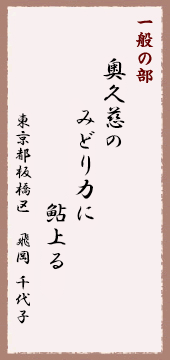 一般の部
奥久慈の
みどり力に
鮎上る
東京都板橋区　飛岡　千代子